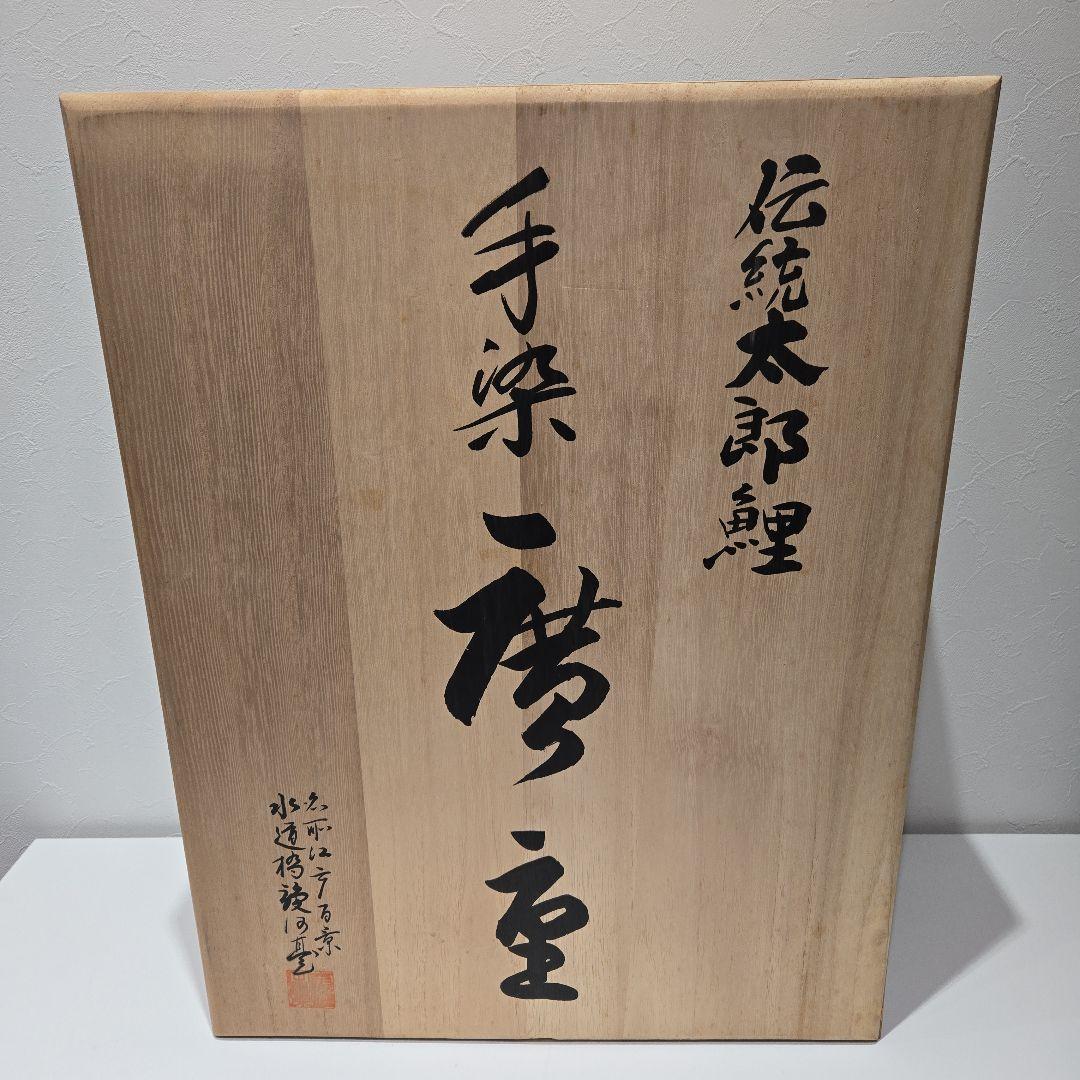 伝統太郎鯉
手染廣重
名所江戸百景
水道橋駿河臺